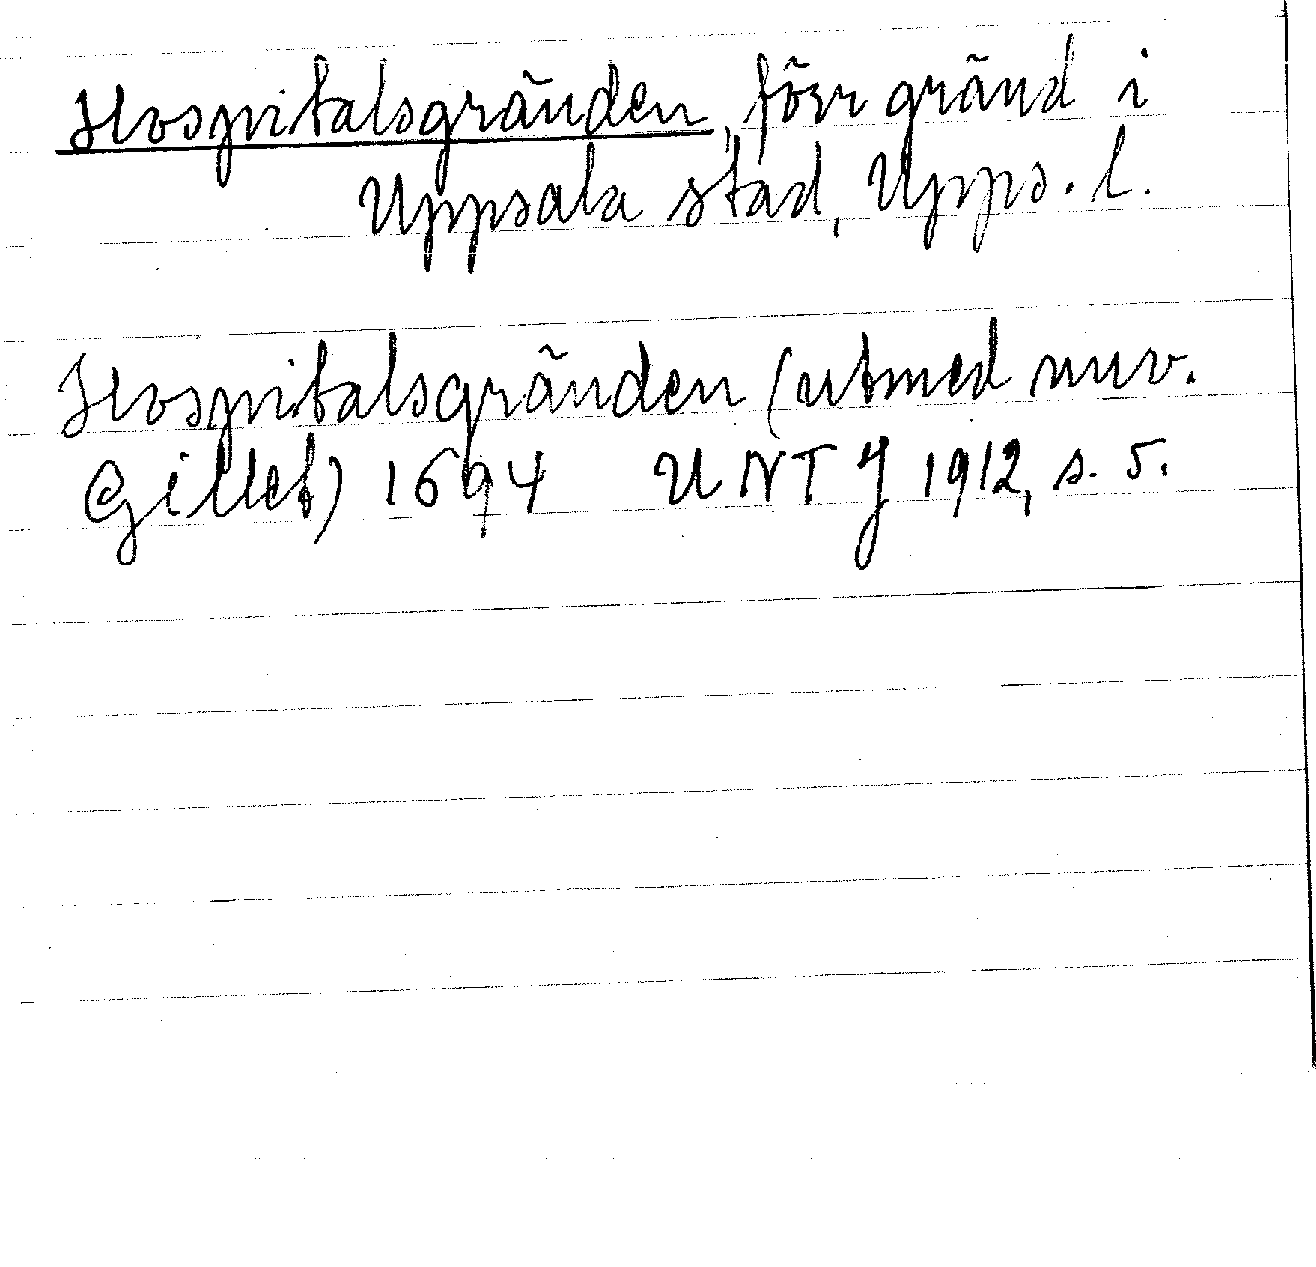 Hospitalsgränden, förr gränd i
Uppsala stad, Upps. l.
Hospitalsgränden (utmed nuv.
Gillet) 1694 UNT J 1912, s. 5.